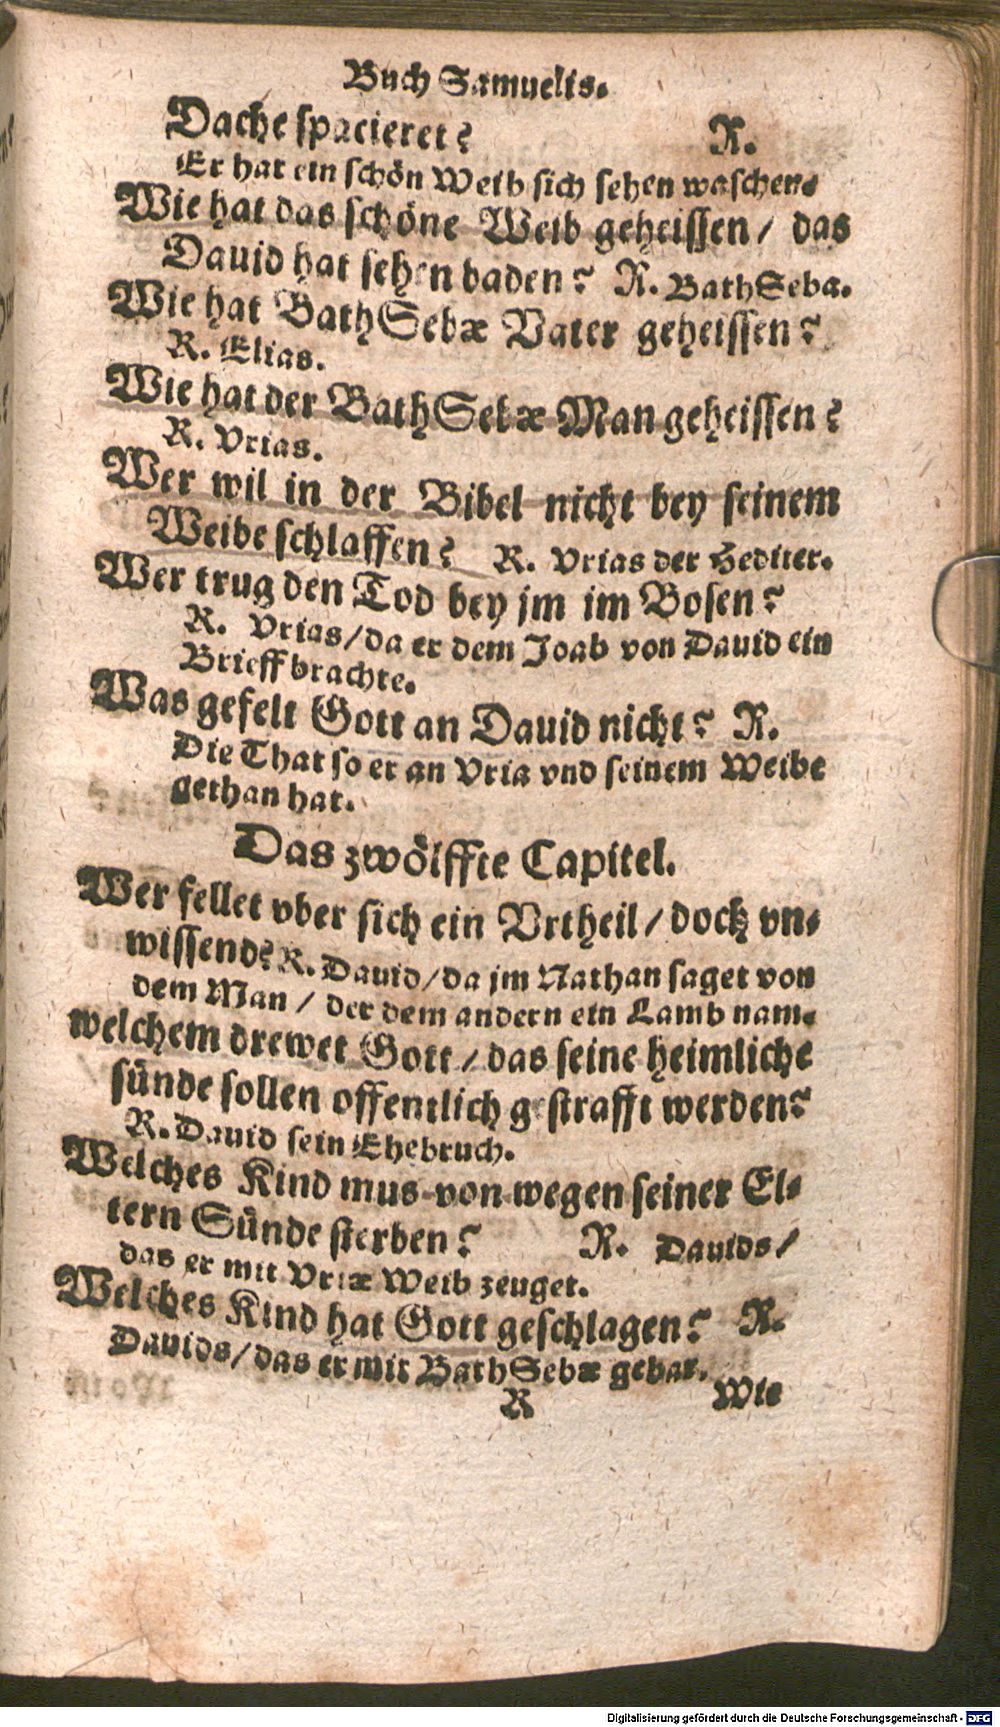 Buch Samuelis.
Dache spacieret? R.
Er hat ein schön Weib sich sehen waschen.
Wie hat das schöne Weib geheissen / das
Dauid hat sehen baden? R. BathSeba.
Wie hat BathSebæ Vater geheissen?
R. Elias.
Wie hat der BathSebæ Man geheissen?
R. Vrias.
Wer wil in der Bibel nicht bey seinem
Weibe schlaffen? R. Vrias der Hediter.
Wer trug den Tod bey jm im Bosen?
R. Vrias / da er dem Joab von Dauid ein
Brieff brachte.
Was gefelt Gott an Dauid nicht? R.
Die That so er an Vria vnd seinem Weibe
gethan hat.
Das zwölffte Capitel.
Wer fellet vber sich ein Vrtheil / doch vn-
wissend? R. Dauid / da jm Nathan saget von
dem Man / der dem andern ein Lamb nam.
welchem drewet Gott / das seine heimliche
sünde sollen offentlich gestrafft werden?
R. Dauid sein Ehebruch.
Welches Kind mus von wegen seiner El-
tern Sünde sterben? R. Dauids /
das er mit Vriæ Weib zeuget.
Welches Kind hat Gott geschlagen? R.
Dauids / das er mit BathSebæ gebar.
R Wie
Digitalisierung gefördert durch die Deutsche Forschungsgemeinschaft - DFG